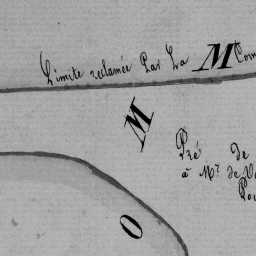 Limite reclamée Par La Com
M
M
Pré de
à Mr. de
O